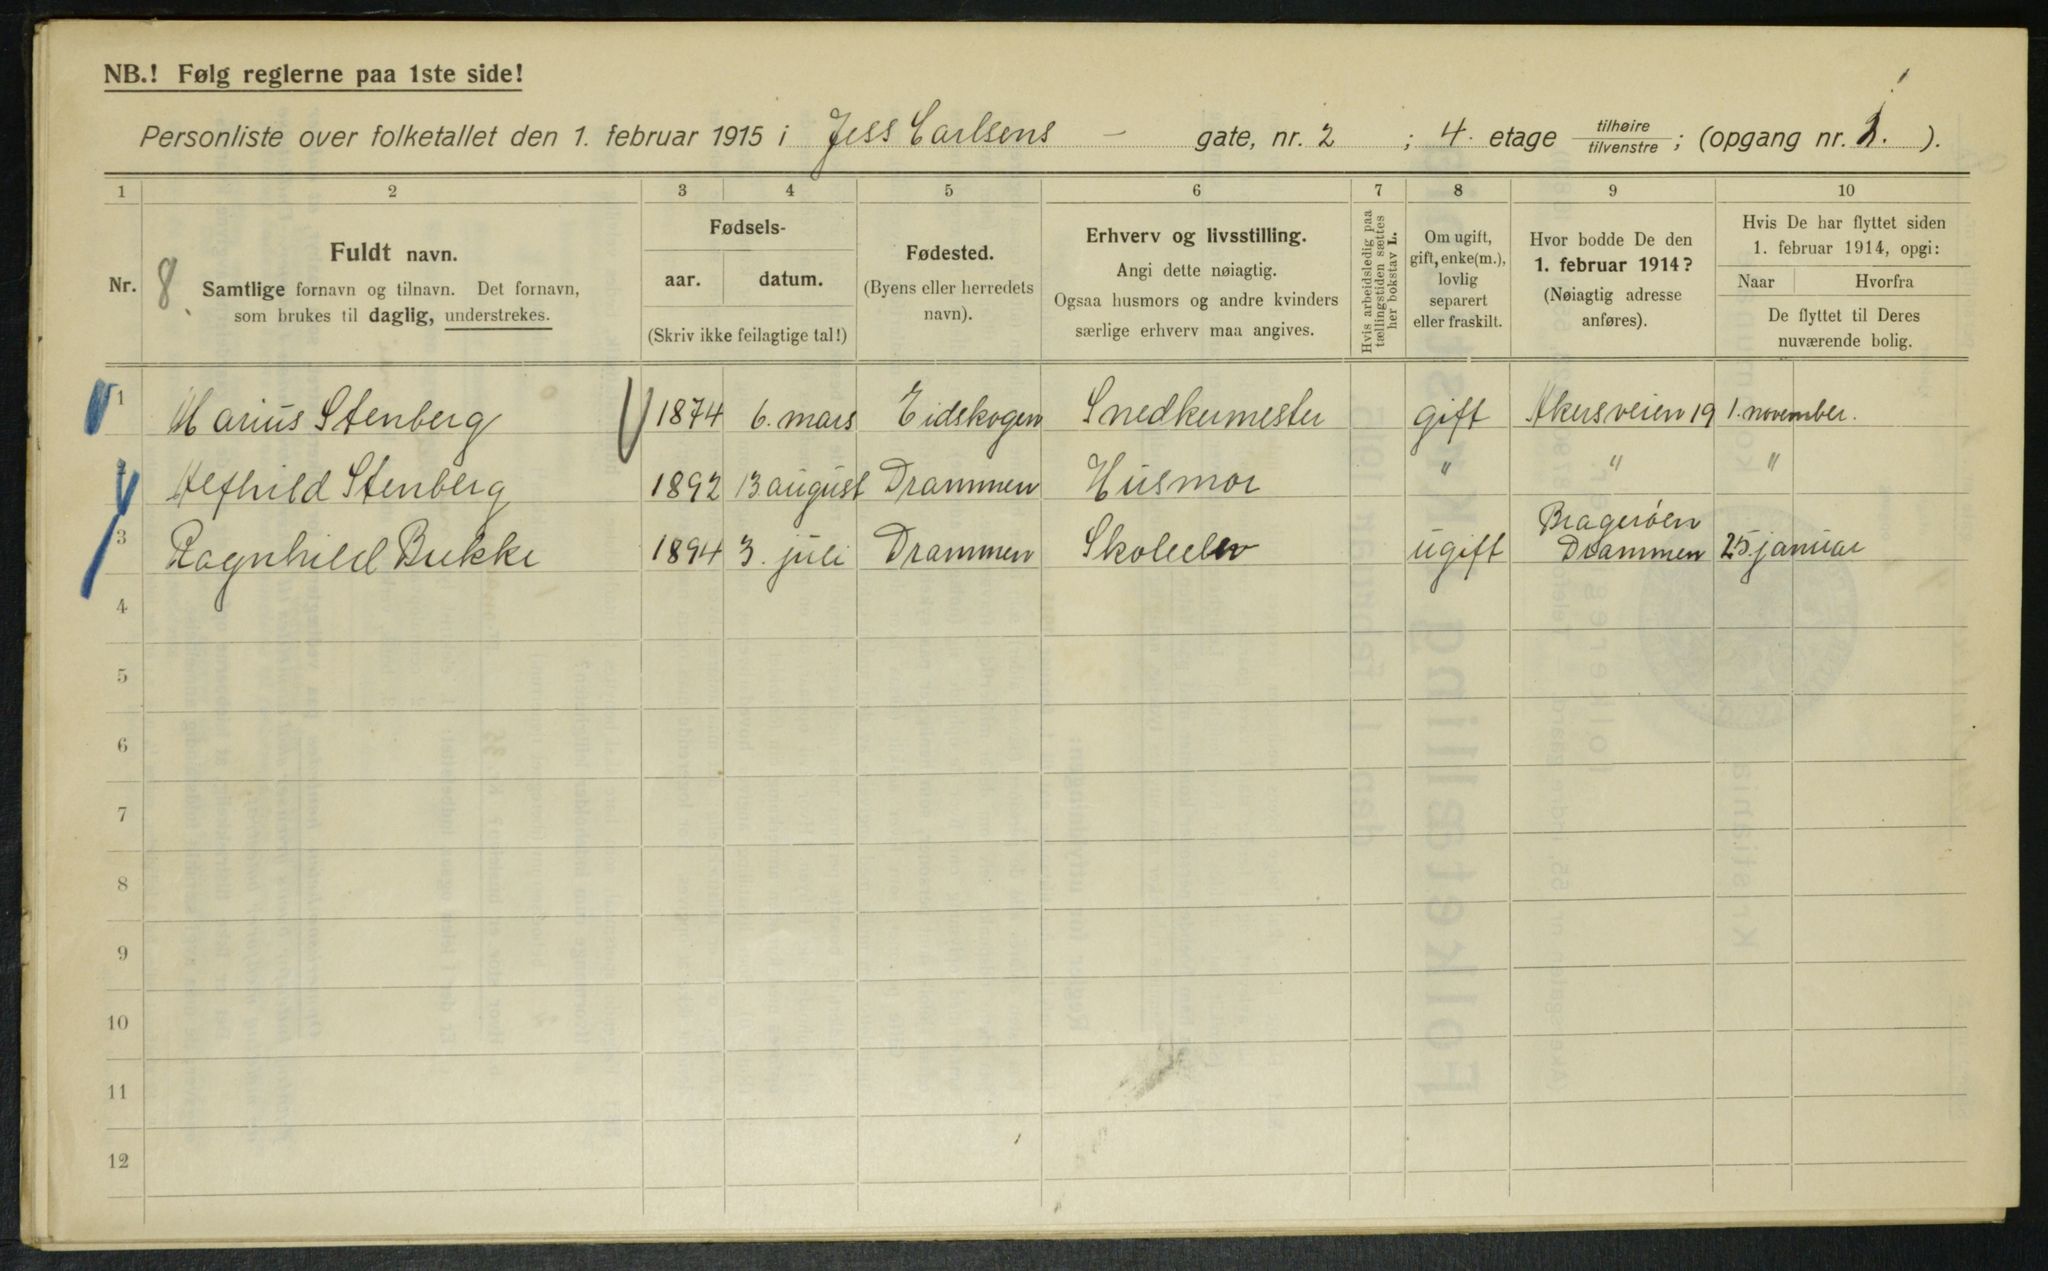 NB.! Følg reglerne paa 1ste side!
Personliste over folketallet den 1. februar 1915 i Jess Carlsens – gate, nr. 2 ; 4. etage tilhøire / tilvenstre ; (opgang nr. 1. ).
1 2 3 4 5 6 7 8 9 10
Nr.
8.
Fuldt navn.
Samtlige fornavn og tilnavn. Det fornavn,
som brukes til daglig, understrekes.
Fødsels-
aar. datum.
(Skriv ikke feilagtige tal!)
Fødested.
(Byens eller herredets
navn).
Erhverv og livsstilling.
Angi dette nøiagtig.
Ogsaa husmors og andre kvinders
særlige erhverv maa angives.
Hvis arbeidsledig paa
tællingstiden sættes
her bokstav L.
Om ugift,
gift, enke(m.),
lovlig
separert
eller fraskilt.
Hvor bodde De den
1. februar 1914?
(Nøiagtig adresse
anføres).
Hvis De har flyttet siden
1. februar 1914, opgi:
Naar Hvorfra
De flyttet til Deres
nuværende bolig.
1 Marius Stenberg 1874 6. mars Eidskogen Snedkermester gift Akersveien 19 1. november.
2 Alfhild Stenberg 1892 13 august Drammen Husmor " " "
3 Ragnhild Bekke 1894 3. juli Drammen Skoleelev ugift Bragerøen
Drammen 25. januar
4
5
6
7
8
9
10
11
12